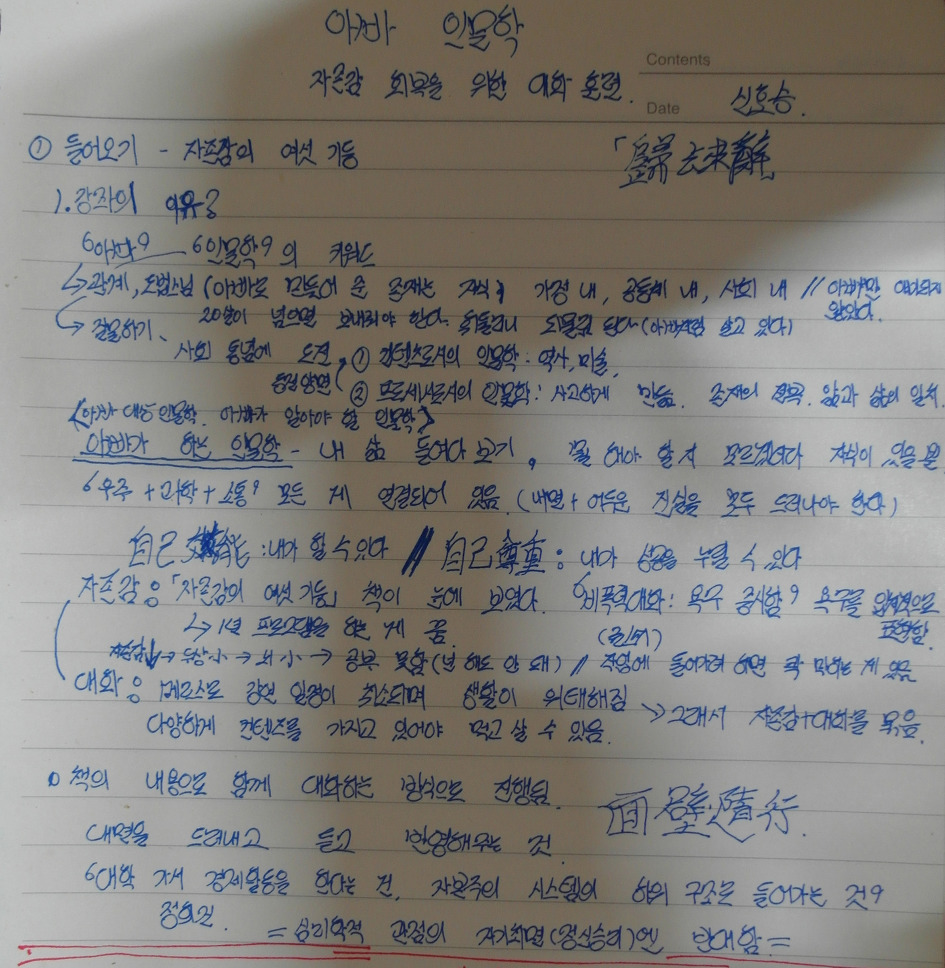 아빠 인문학
자존감 회복을 위한 대화 훈련.
Contents
Date 신호승.
① 들어오기 - 자존감의 여섯 기둥
「歸去來辭」
1. 강좌의 이유?
'아빠' — '인문학'의 키워드
↳ 관계, 도법스님 (아빠로 만들어 준 존재는 자식) 가정 내, 공동체 내, 사회 내 // 아빠만 얘기되지 않았다.
↳ 질문하기. 20살이 넘으면 보내줘야 한다. 괴물이 된다 (아빠처럼 살고 있다)
사회 통념에 도전 ① 컨텐츠로서의 인문학 : 역사, 미술,
동전양면 ② 프로세서로서의 인문학 : 사고하게 만듦. 존재의 앎과 삶의 일치.
<아빠 대상 인문학. 아빠가 알아야 할 인문학>
아빠가 하는 인문학 - 내 삶 들여다 보기. 뭘 해야 할 지 모르겠어다 자식이 있을 뿐
'우주 + 과학 + 소통' 모든 게 연결되어 있음. (내면 + 어두운 진실을 모두 드러나야 한다)
自己 : 내가 할 수 있다 // 自己尊重 : 내가 성공을 누릴 수 있다
자존감 : 「자존감의 여섯 기둥」 책이 눈에 보였다. '비폭력대화 : 욕구 중시함' 욕구를 표현함.
↳ 1년 프로그램을 하는 게 꿈.
자존감↓ → 小 → 小 → 공부 못함 (넌 해도 안 돼) // 직업에 들어가려 하면 콱 막히는 게 있음
대화 : 메르스로 강연 일정이 축소되며 생활이 위태해짐
다양하게 컨텐츠를 가지고 있어야 먹고 살 수 있음. → 그래서 자존감+대화를 묶음.
○ 책의 내용으로 함께 대화하는 방식으로 진행됨.
面壁隨行.
내면을 드러내고 듣고 반영해주는 것.
'대학 가서 경제활동을 한다는 건, 자본주의 시스템의 하위 구조로 들어가는 것'
정의전. = 심리학적 관점의 자기최면(정신승리)엔 반대함 =